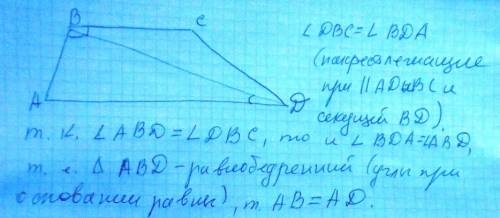 B
C
A
D
∠DBC=∠BDA
(накрестлежащие
при || AD и BC и
секущей BD).
т. к. ∠ABD=∠DBC, то и ∠BDA=∠ABD,
т. е. Δ ABD - равнобедренный (углы при
основании равны), т. AB=AD.